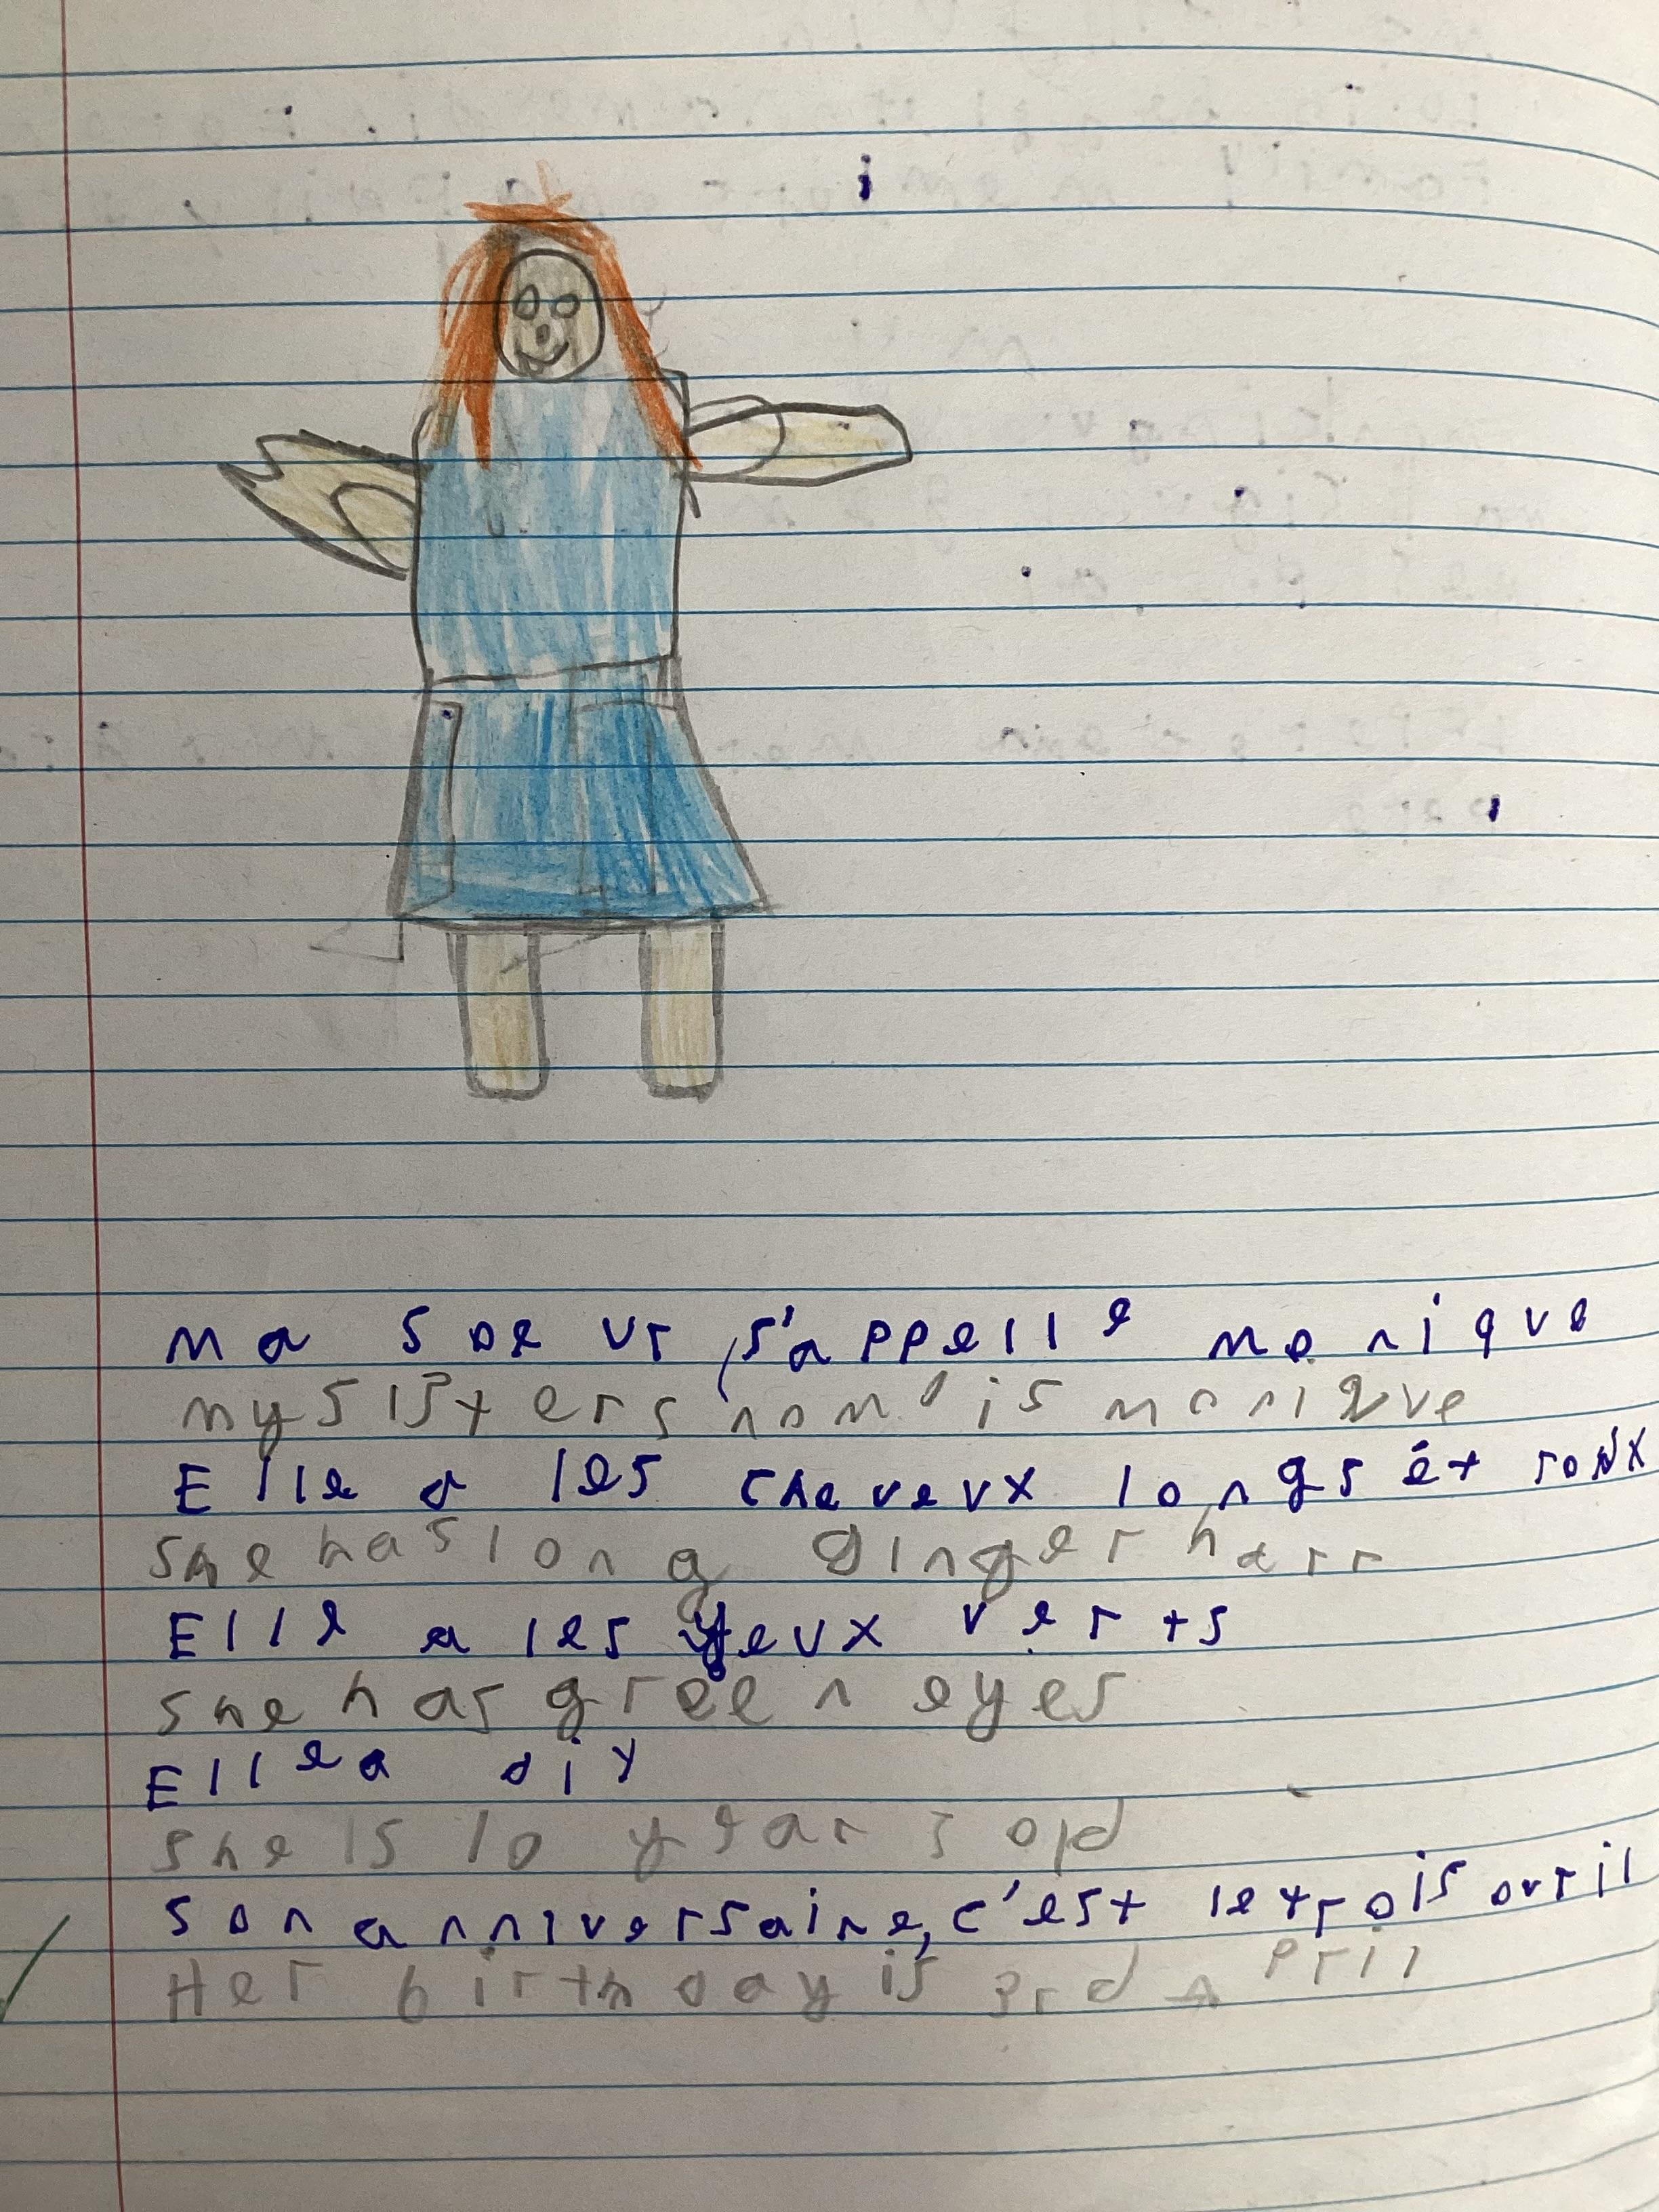 Ma soeur s'appelle monique
my sisters nam is monique
Elle a les cheveux longs ét roux
she has long ginger harr
Elle a les yeux verts
she has green eyes
Elle a dix
she is 10 years old
son anniversaire, c'est le trois avril
Her birthday is 3rd April